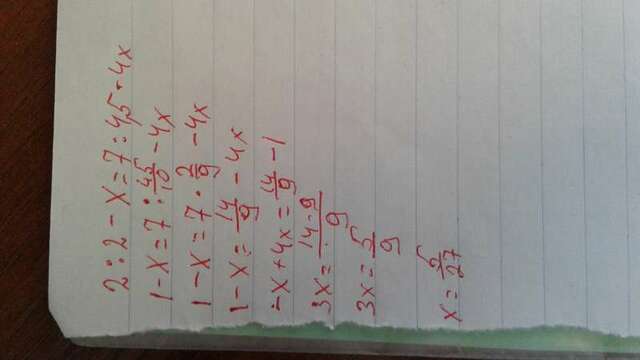 2:2-x=7:4,5-4x
1-x=7:45/10-4x
1-x=7·2/9-4x
1-x=14/9-4x
-x+4x=14/9-1
3x=14-9/9
3x=5/9
x=5/27